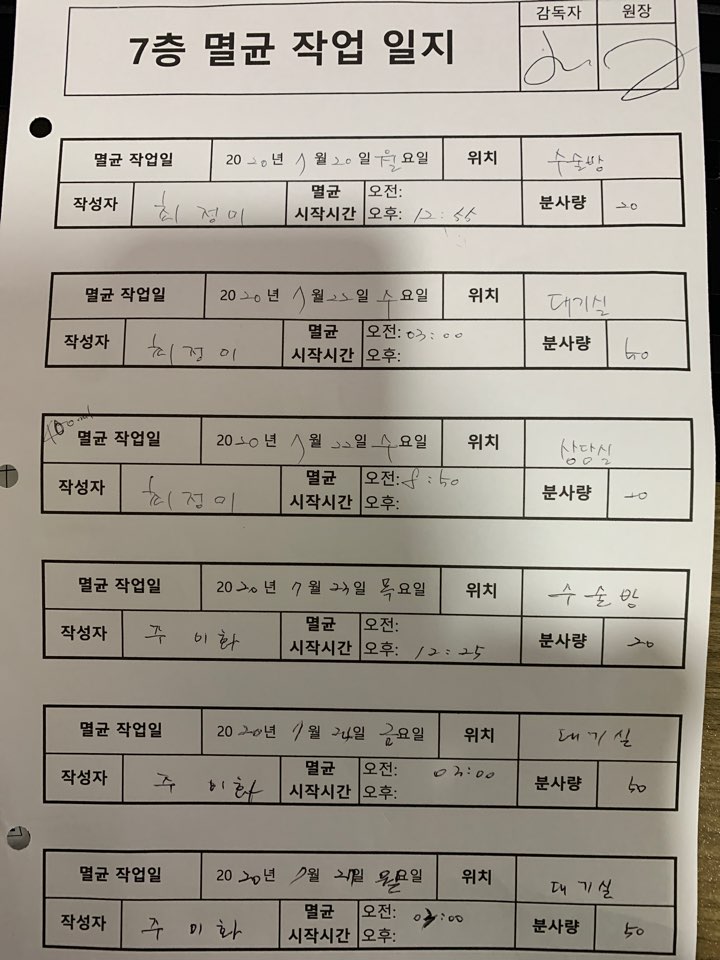 감독자 원장
7층 멸균 작업 일지
멸균 작업일 2020년 7월 20일 월요일 위치 수술방
작성자 최정미 멸균 시작시간 오전: 오후: 12:55 분사량 20
멸균 작업일 2020년 7월 22일 수요일 위치 대기실
작성자 최정미 멸균 시작시간 오전: 03:00 오후: 분사량 50
400ml
멸균 작업일 2020년 7월 22일 수요일 위치 상담실
작성자 최정미 멸균 시작시간 오전: 8:50 오후: 분사량
멸균 작업일 2020년 7월 23일 목요일 위치 수술방
작성자 주미화 멸균 시작시간 오전: 오후: 12:25 분사량 20
멸균 작업일 2020년 7월 24일 금요일 위치 대기실
작성자 주미화 멸균 시작시간 오전: 03:00 오후: 분사량 50
멸균 작업일 2020년 7월 27일 월요일 위치 대기실
작성자 주미화 멸균 시작시간 오전: 03:00 오후: 분사량 50